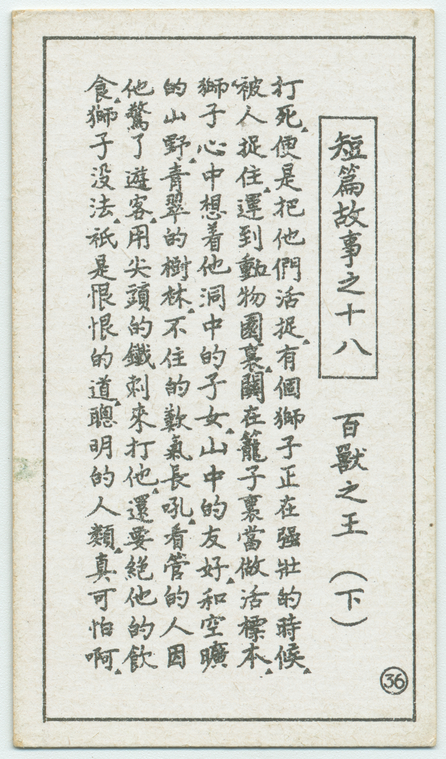 短篇故事之十八
百獸之王（下）
打死、便是把他們活捉、有個獅子正在强壯的時候、
被人捉住、運到動物園裏、關在籠子裏當做活標本、
獅子心中想着他洞中的子女、山中的友好、和空曠
的山野、青翠的樹林、不住的歎氣長吼、看管的人因
他驚了遊客、用尖頭的鐵刺來打他、還要絕他的飲
食、獅子没法、祇是恨恨的道、聰明的人類、真可怕啊、
36